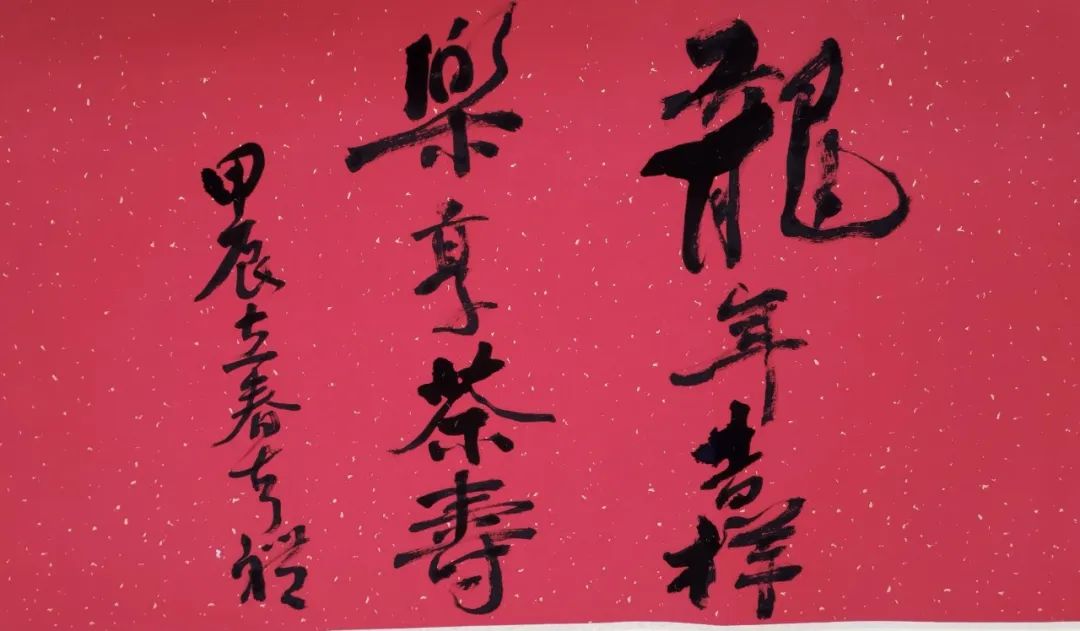 龍年吉祥
樂享茶壽
甲辰立春